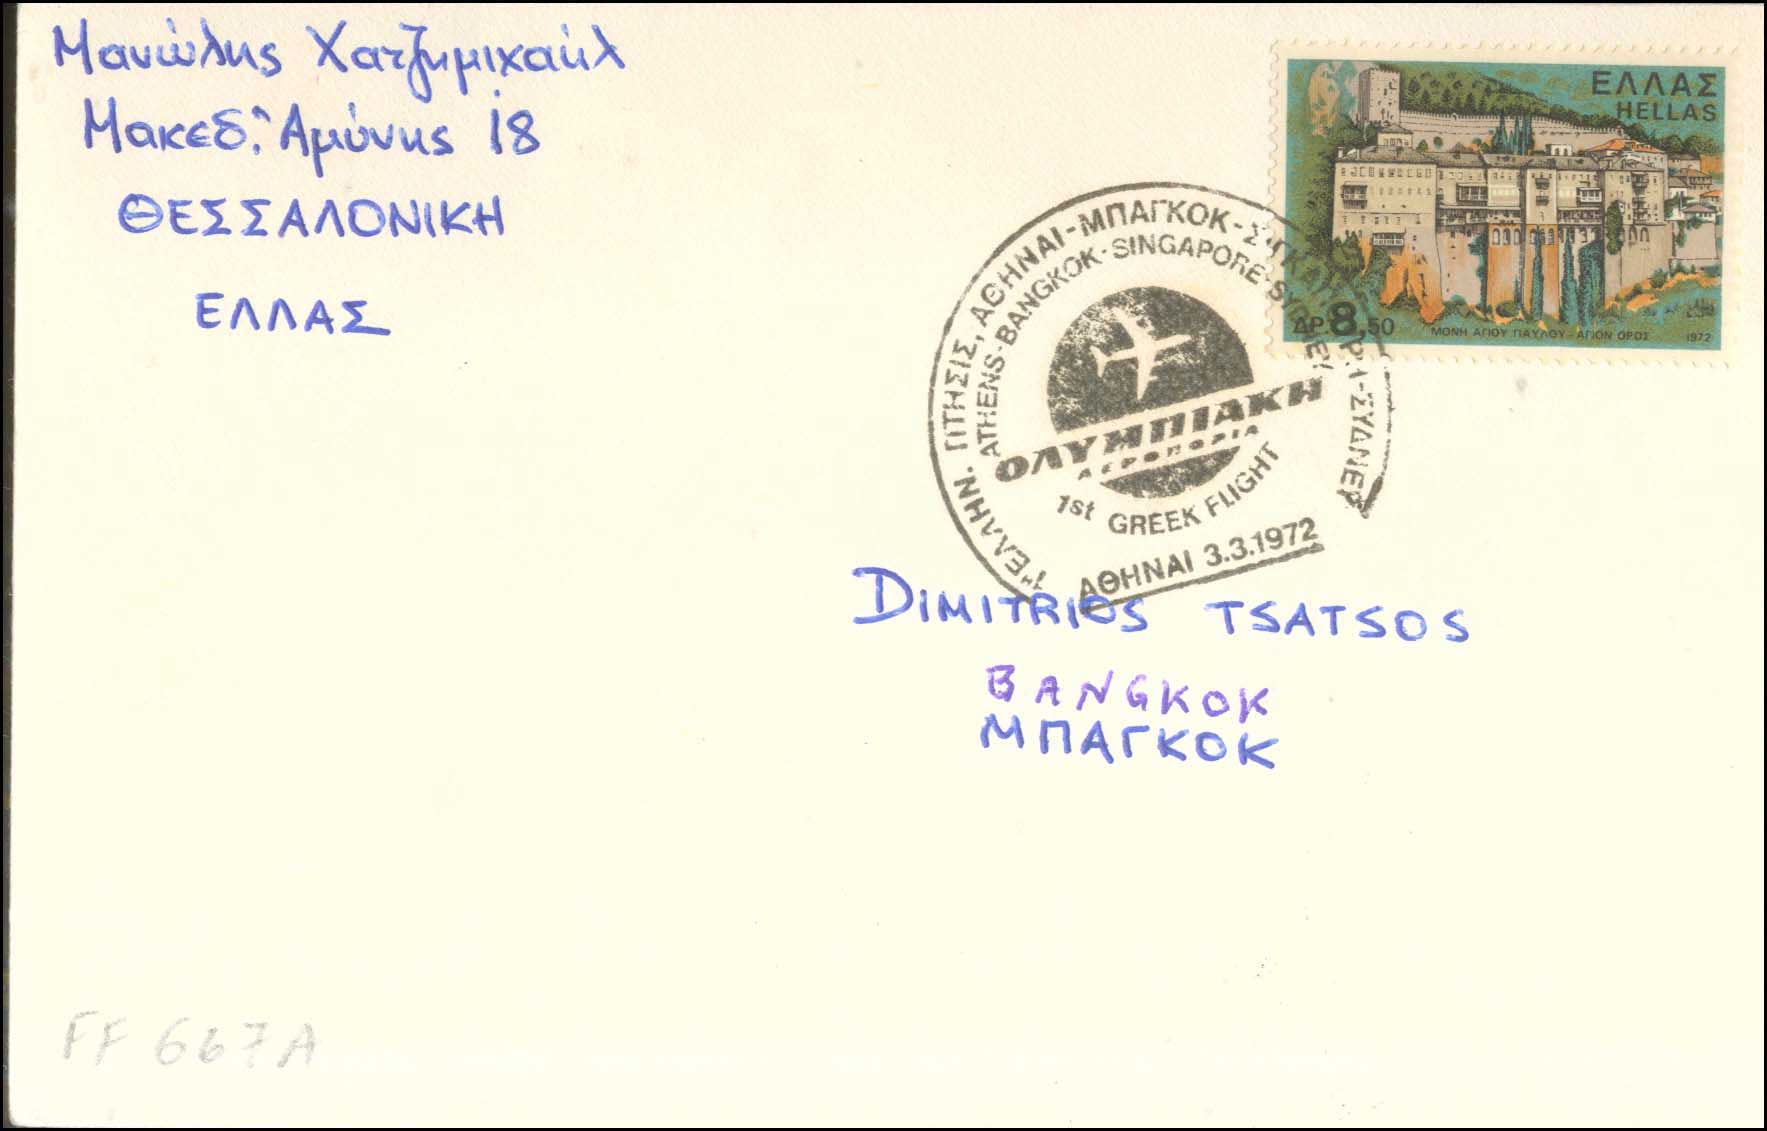 Μανώλης Χατζημιχαήλ
Μακεδ. Αμύνης 18
ΘΕΣΣΑΛΟΝΙΚΗ
ΕΛΛΑΣ
ΕΛΛΑΣ
HELLAS
ΔΡ. 8,50
ΜΟΝΗ ΑΓΙΟΥ ΠΑΥΛΟΥ - ΑΓΙΟΝ ΟΡΟΣ 1972
1η ΕΛΛΗΝ. ΠΤΗΣΙΣ, ΑΘΗΝΑΙ-ΜΠΑΓΚΟΚ-ΣΙΓΚΑΠΟΥΡΗ-ΣΥΔΝΕΫ
ATHENS-BANGKOK-SINGAPORE-SYDNEY
ΟΛΥΜΠΙΑΚΗ
ΑΕΡΟΠΟΡΙΑ
1st GREEK FLIGHT
ΑΘΗΝΑΙ 3.3.1972
DIMITRIOS TSATSOS
BANGKOK
ΜΠΑΓΚΟΚ
FF 667A